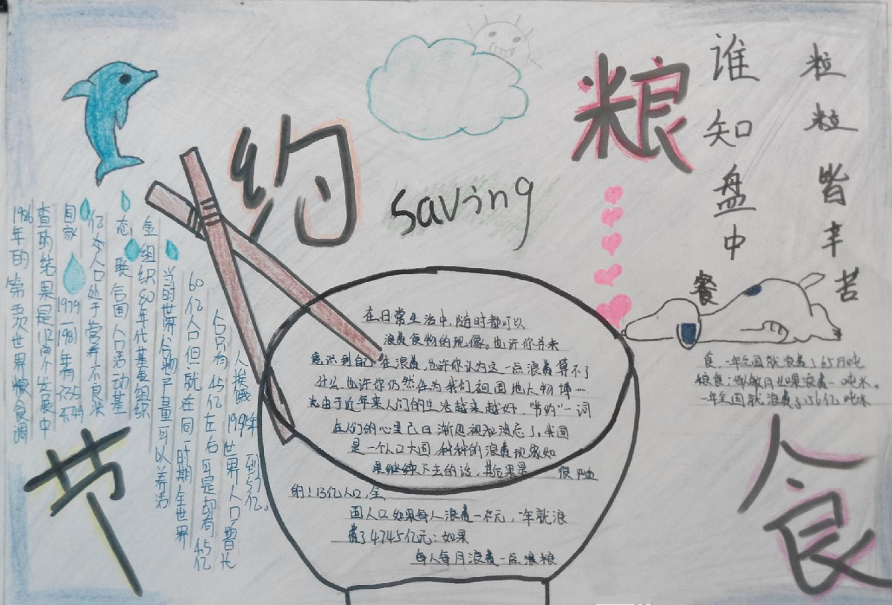 节
约
粮
食
saving
谁知盘中餐
粒粒皆辛苦
在日常生活中,随时都可以
浪费食物的现像,也许你并未
意识到自己在浪费,也许你认为这一点浪费算不了
什么,也许你仍然在为我们祖国地大物博一
由于近年来人们的生活越来越好,"节约"一词
在人们的心里已日渐
是一个人口大国,种种的浪费现象如
果继续下去的话,其后果是 很严
的!13亿人口,全
国人口如果每人浪费一元,一年就浪
费了4745亿元;如果
每人每月浪费一点 粮
食,一年全国就浪费了65万吨
粮食;每人每月如果浪费一吨水,
一年全国就浪费了156亿吨水
1986年的第五次世界粮食调
查的结果是 个发展中
国家 1979—1981年有
亿 人口处于营养不良状
态 联合国人口活动基
金组织80年代基 组织
当时世界谷物产量可以养活
60亿人口但就在同一时期全世界
人口只有45亿左右可是却有 45亿
人挨饿 199 年世界人口增长
到57亿.